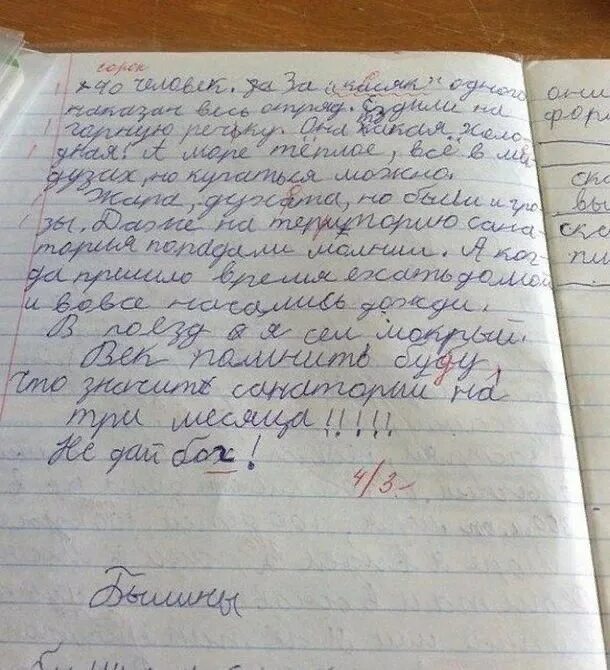 сорок
40 человек. Да За "косяк" одного
наказан весь отряд. Ездили на
горную речьку. Она такая холо-
дная! А море тёплое, всё в ме-
дузах, но купаться можно.
Жара, духота, но были и гро-
зы. Даже на территорию сана-
тория попадали молнии. А ког-
да пришло время ехать домой
и вовсе начались дожди.
В поезд я сел мокрый.
Век помнить буду,
что значить санаторий на
три месяца!!!!!
Не дай бох!
4/3-
Былины
они
фор
ска
вы
ска